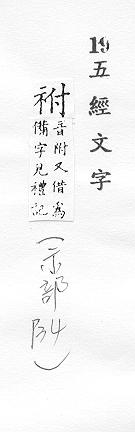 19 五經文字
祔
音附又借為
備字見禮記
(示部 134)